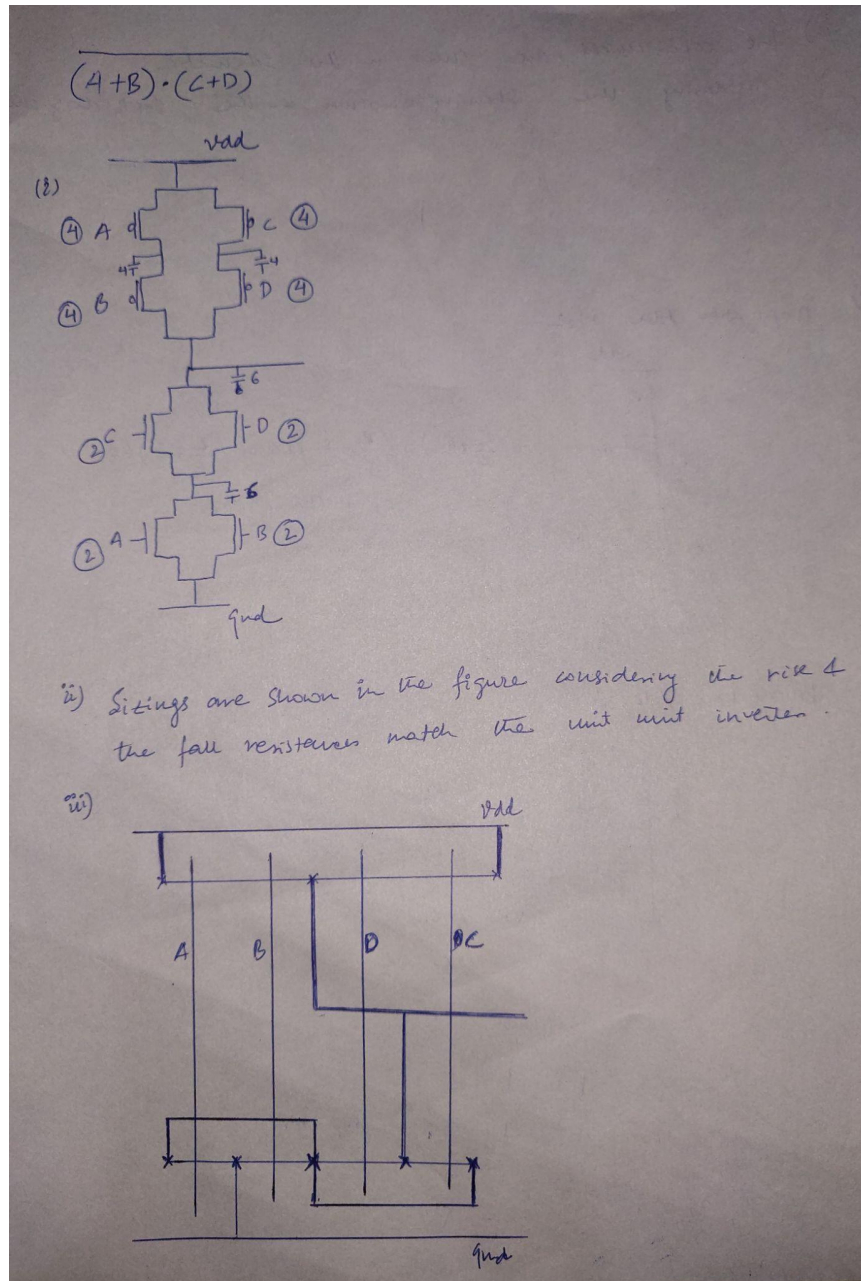 (A+B)·(C+D)
vdd
(i)
④ A
C ④
4
4
④ B
D ④
6
② C
D ②
6
② A
B ②
gnd
ii) Sizings are shown in the figure considering the rise &
the fall resistances match the unit unit inverter.
iii)
vdd
A B D C
gnd